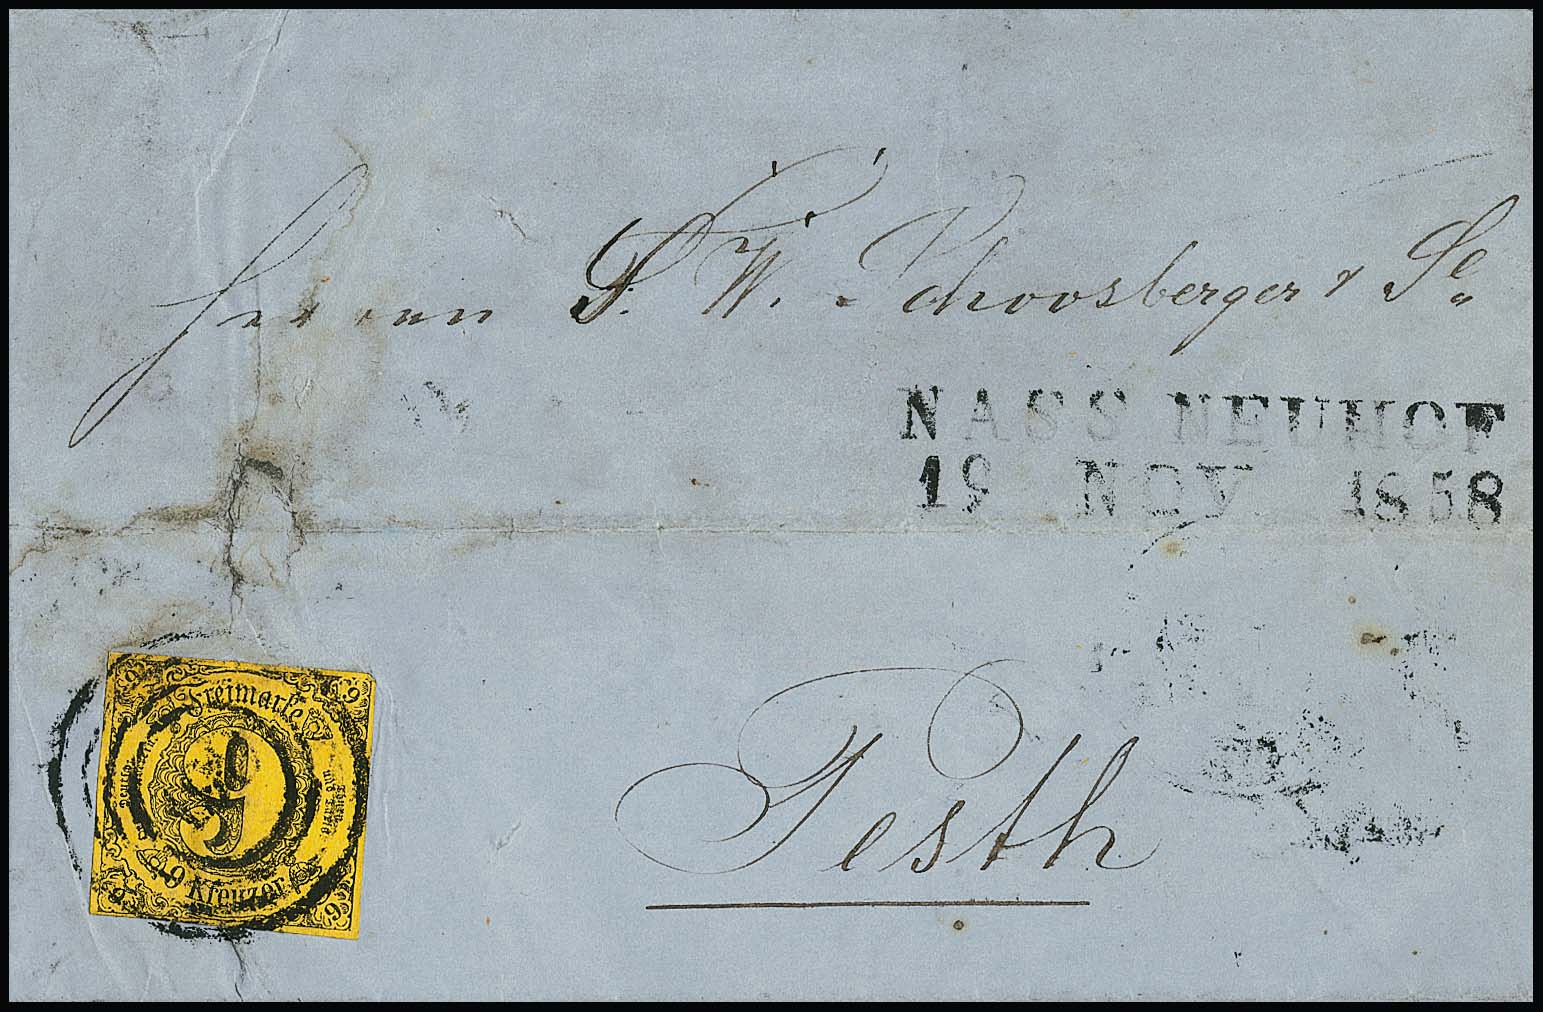 Herren S. W. Schossberger & S.
NASS NEUHOF
19 NOV 1858
Pesth
9 9
Freimarke
9
9 Kreuzer
9 9